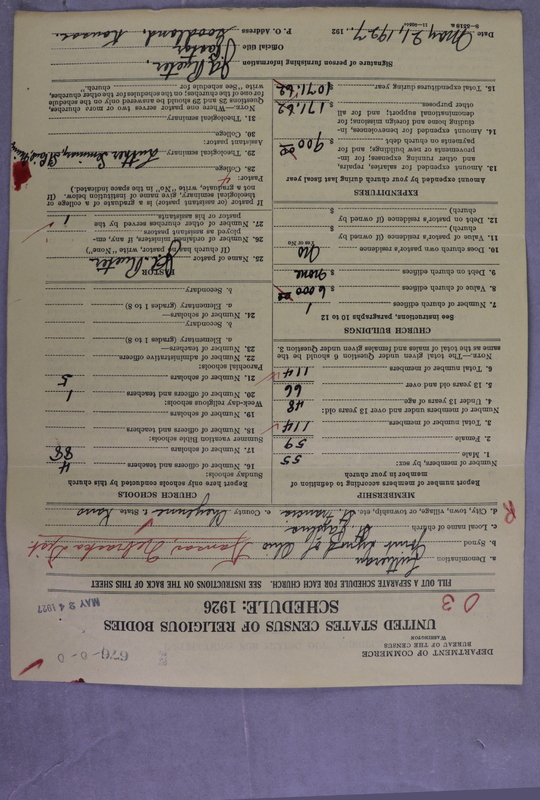 DEPARTMENT OF COMMERCE
BUREAU OF THE CENSUS
WASHINGTON
676-0-0
UNITED STATES CENSUS OF RELIGIOUS BODIES
SCHEDULE: 1926
MAY 24 1927
03
FILL OUT A SEPARATE SCHEDULE FOR EACH CHURCH. SEE INSTRUCTIONS ON THE BACK OF THIS SHEET
a. Denomination Lutheran
b. Synod Joint Synod of Ohio Kansas, Nebraska Dist.
c. Local name of church
d. City, town, village, or township, etc. St. Francis e. County Cheyenne f. State Kans
R
MEMBERSHIP
Report number of members according to definition of member in your church
Number of members, by sex:
1. Male 55
2. Female 59
3. Total number of members 114
Number of members under and over 13 years old:
4. Under 13 years of age 48
5. 13 years old and over 66
6. Total number of members 114
NOTE.—The total given under Question 6 should be the same as the total of males and females given under Question 3.
CHURCH BUILDINGS
See instructions, paragraphs 10 to 12
7. Number of church edifices 1
8. Value of church edifices $ 6000 00
9. Debt on church edifices $ none
10. Does church own pastor's residence No
Yes or No
11. Value of pastor's residence (if owned by church) $
12. Debt on pastor's residence (if owned by church) $
EXPENDITURES
Amount expended by your church during last fiscal year
13. Amount expended for salaries, repairs, and other running expenses; for improvements or new buildings; and for payments on church debt $ 900 00
14. Amount expended for benevolences, including home and foreign missions; for denominational support; and for all other purposes $ 171.62
15. Total expenditures during year $ 1071.62
CHURCH SCHOOLS
Report here only schools conducted by this church
Sunday schools:
16. Number of officers and teachers 4
17. Number of scholars 88
Summer vacation Bible schools:
18. Number of officers and teachers
19. Number of scholars
Week-day religious schools:
20. Number of officers and teachers 1
21. Number of scholars 5
Parochial schools:
22. Number of administrative officers
23. Number of teachers—
a. Elementary (grades 1 to 8)
b. Secondary
24. Number of scholars—
a. Elementary (grades 1 to 8)
b. Secondary
PASTOR
25. Name of pastor
(If church has no pastor, write "None")
26. Number of ordained ministers, if any, employed as assistant pastors
27. Number of other churches served by the pastor or his assistants 1
If pastor (or assistant pastor) is a graduate of a college or theological seminary, give name of institution below. (If not a graduate, write "No" in the space indicated.)
Pastor:
28. College
29. Theological seminary Luther Seminary, St. Paul, Minn
Assistant pastor:
30. College
31. Theological seminary
NOTE.—Where one pastor serves two or more churches, Questions 25 and 29 should be answered only on the schedule for one of the churches; on the schedules for the other churches, write "See schedule for church."
Signature of person furnishing information
Official title Pastor
P. O. Address Goodland, Kansas.
Date May 21, 1927, 192